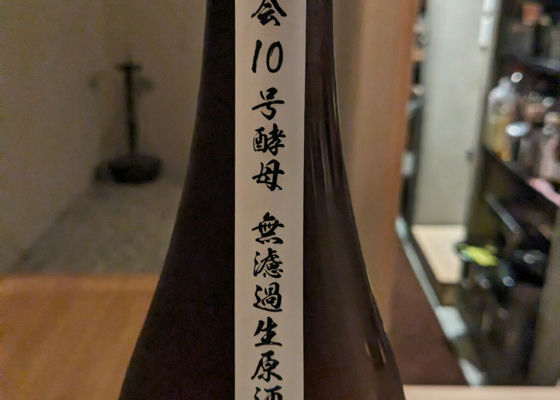 会10号酵母 無濾過生原酒